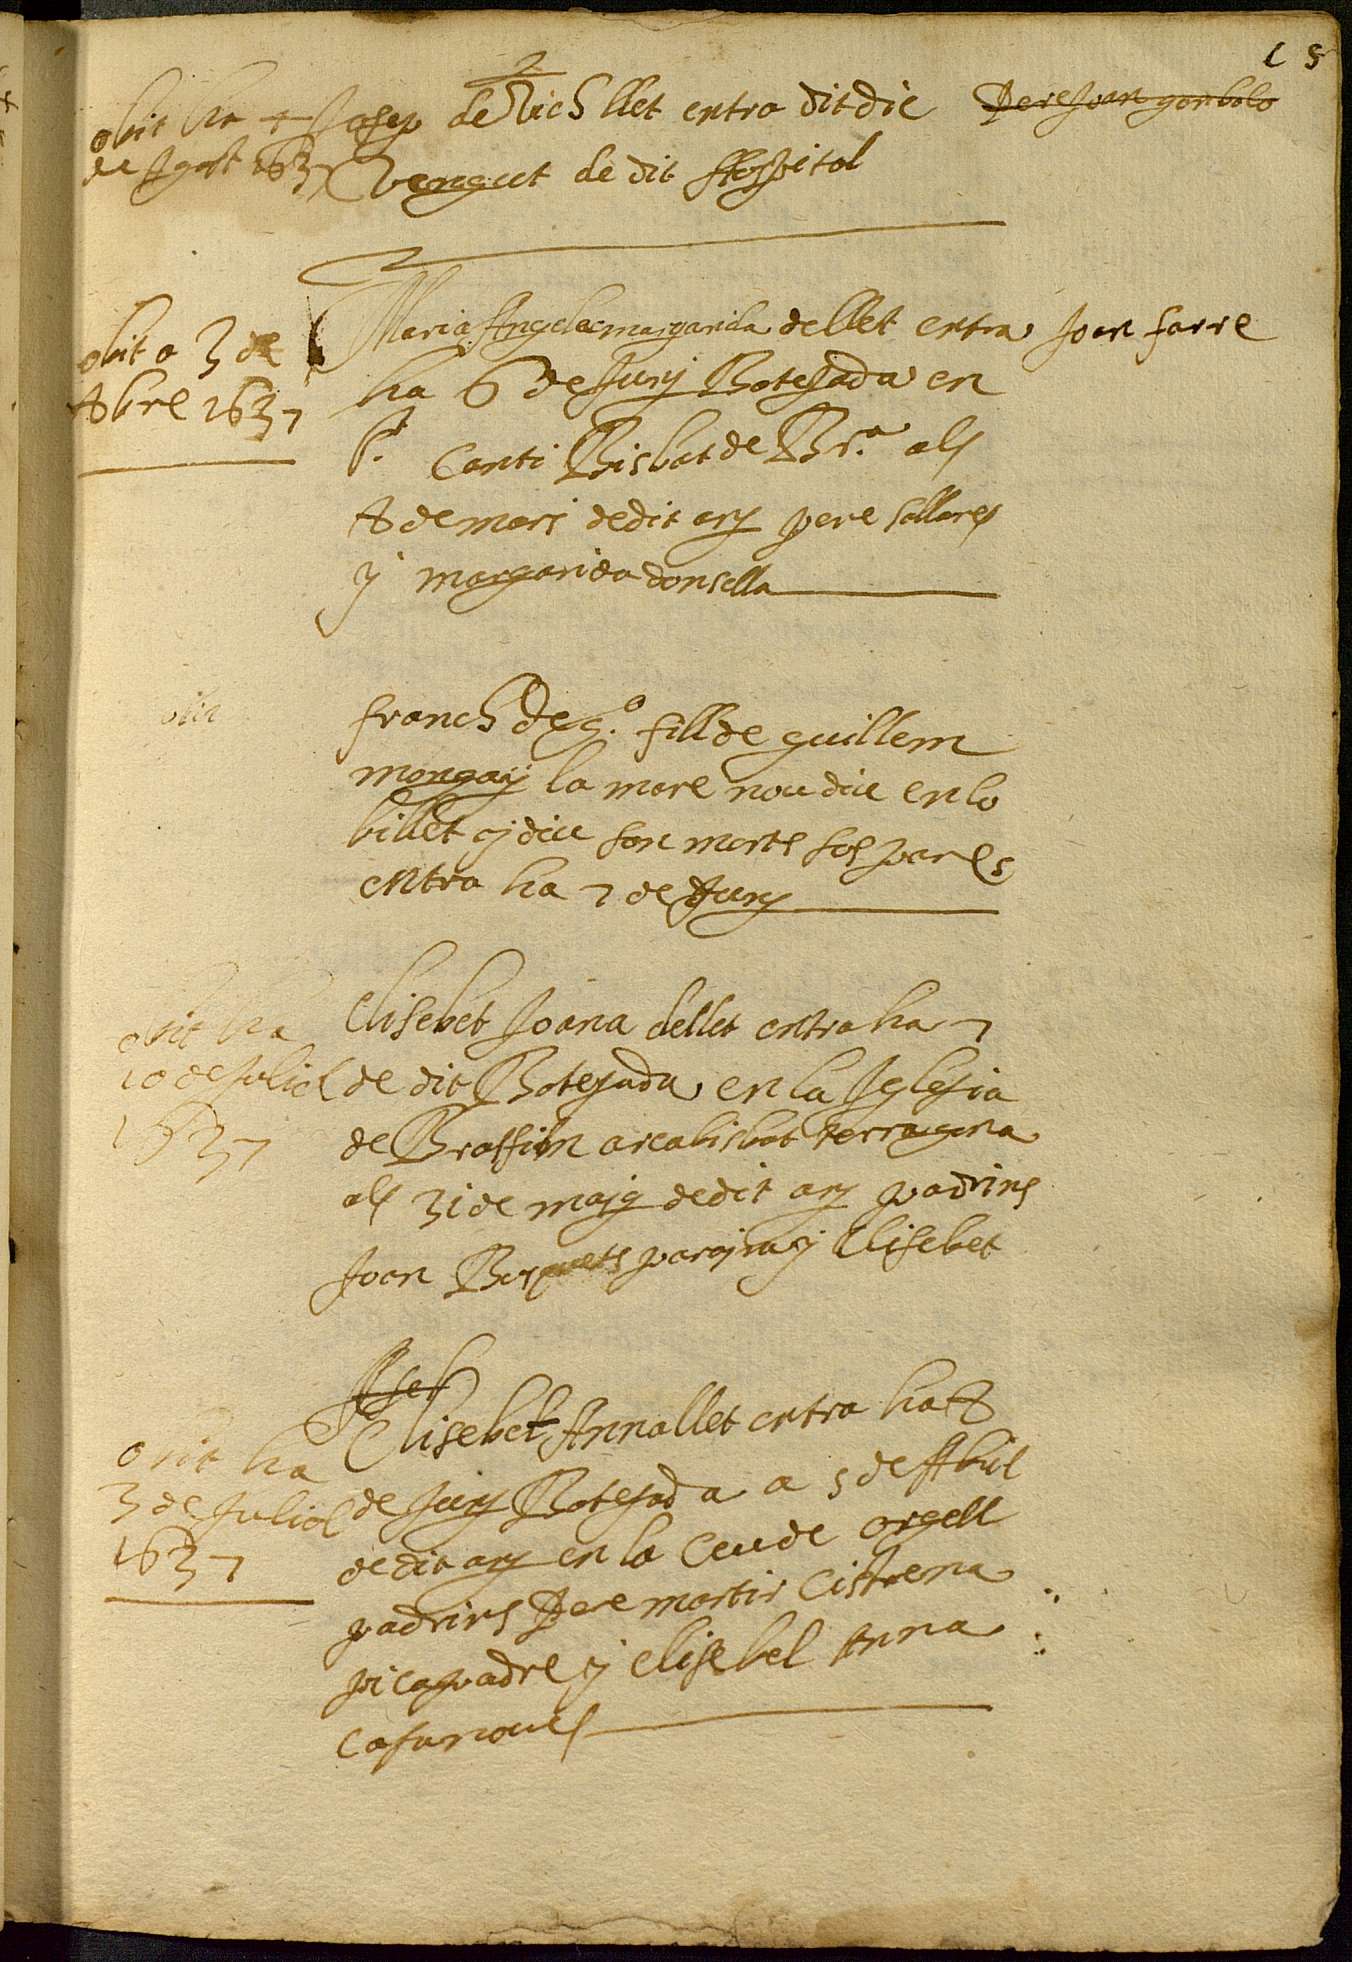 obit ha 4
de Agost 1637
Josep de Vich llet entra dit die
vengut de dit Hospitol
Perejoan gonbolo
obit a 3 de
8bre 1637
Maria Angela margarida dellet entra
ha 6 de Juny Botejada en
St. Conti Bisbat de Bª. als
8 de mars dedit any pere sollares
y margarida donsella
Joan farre
obit
franch de g.º fill de guillem
mongay la mare nou diu en lo
billet y diu son morts sos pares
entra ha 7 de Juny
obit ha
10 de Juliol
1637
Elisebet Joana dellet entra ha 7
de dit Botejada en la Iglesia
de Braffim arcabisbat terragona
als 31 de maig dedit any padrins
Joan y Elisebet
obit ha
3 de Juliol
1637
Elisebet Anna llet entra ha 8
de Juny Botejada a 5 de Abril
de dit any en la Ceu de orgell
padrins Pere martir Cistrena
picapadre y elisebel Anna
casanoves